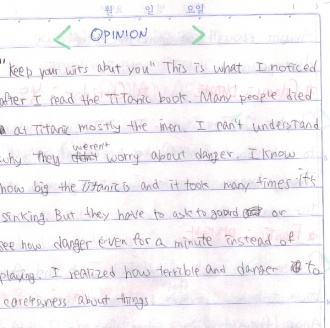 월 일 요일
< OPINION >
"Keep your wits abut you" This is what I noticed
after I read the Titanic book. Many people died
at Titanic mostly the men. I can't understand
why they weren't worry about danger. I know
how big the Titanic is and it took many times its
sinking. But they have to ask to guard or
see how danger even for a minute instead of
playing. I realized how terrible and danger to
carelessness about things.